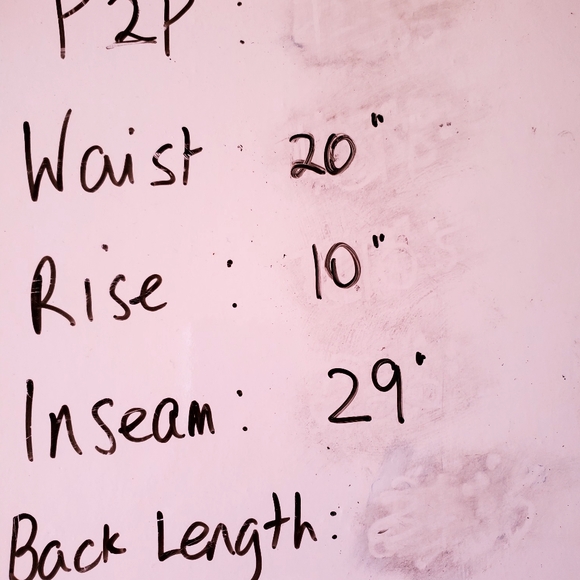 P2P :
Waist : 20"
Rise : 10"
Inseam : 29"
Back Length :